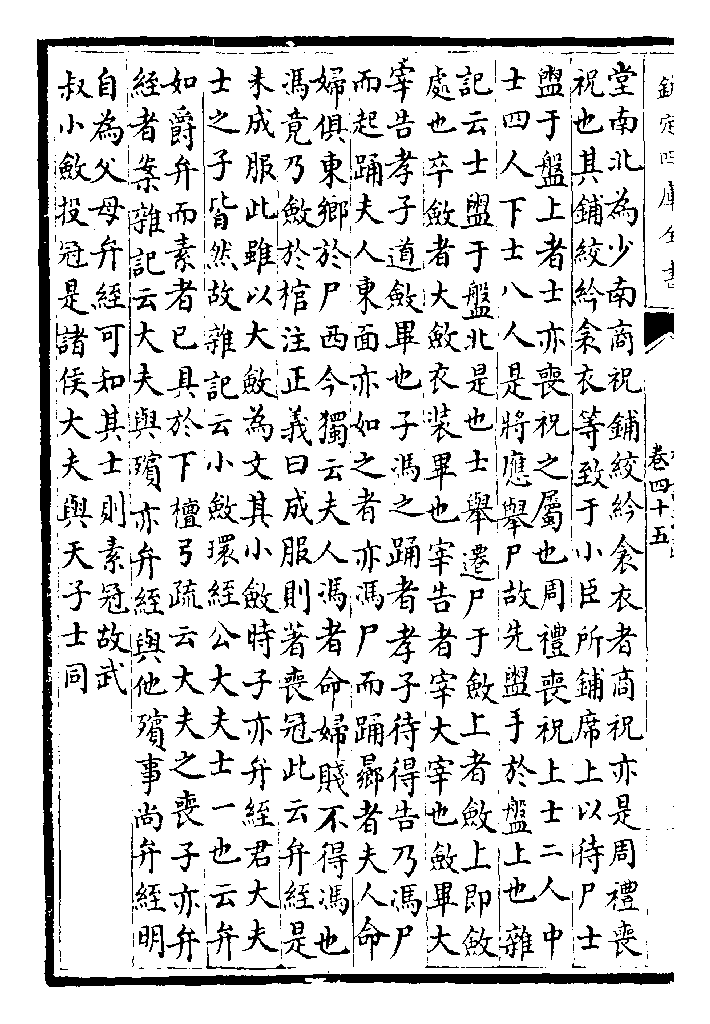 欽定四庫全書
卷四十五
堂南北為少南商祝鋪絞紟衾衣者商祝亦是周禮喪
祝也其鋪絞紟衾衣等致于小臣所鋪席上以待尸士
盥于盤上者士亦喪祝之屬也周禮喪祝上士二人中
士四人下士八人是將應舉尸故先盥手於盤上也雜
記云士盥于盤北是也士舉遷尸于斂上者斂上即斂
處也卒斂者大斂衣裝畢也宰告者宰大宰也斂畢大
宰告孝子道斂畢也子馮之踊者孝子待得告乃馮尸
而起踊夫人東面亦如之者亦馮尸而踊曏者夫人命
婦俱東鄉於尸西今獨云夫人馮者命婦賤不得馮也
馮竟乃斂於棺注正義曰成服則著喪冠此云弁絰是
未成服此雖以大斂為文其小斂時子亦弁絰君大夫
士之子皆然故雜記云小斂環絰公大夫士一也云弁
如爵弁而素者已具於下檀弓疏云大夫之喪子亦弁
絰者案雜記云大夫與殯亦弁絰與他殯事尚弁絰明
自為父母弁絰可知其士則素冠故武
叔小斂投冠是諸侯大夫與天子士同